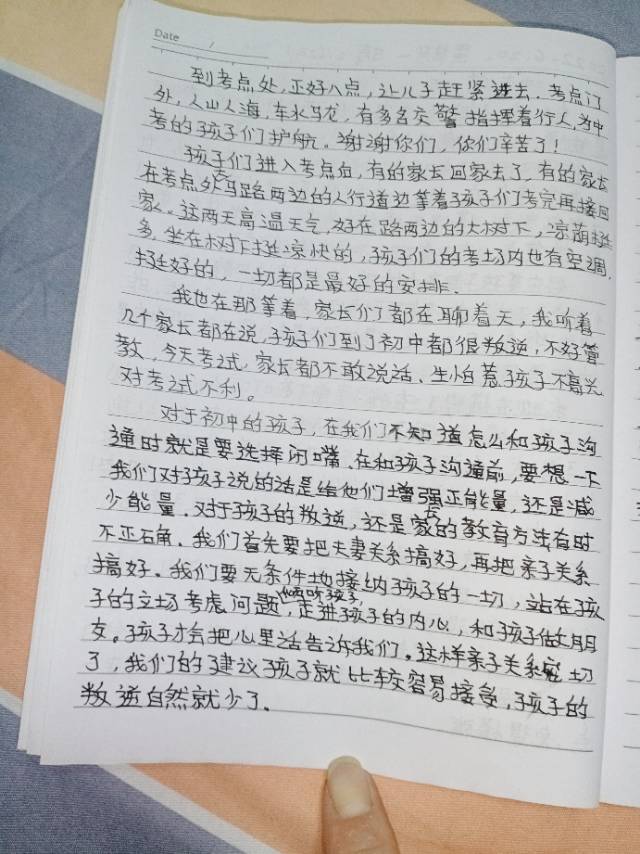 Date /
到考点处,正好八点,让儿子赶紧进去.考点门
外,人山人海,车水马龙,有多名交警指挥着行人,为中
考的孩子们护航。谢谢你们,你们辛苦了!
孩子们进入考点后,有的家长回家去了,有的家长
在考点处马路两边的人行道边等着孩子们考完再接回
家。这两天高温天气,好在路两边的大树下,凉荫挺
多,坐在树下挺凉快的,孩子们的考场内也有空调,
挺好的,一切都是最好的安排.
我也在那等着,家长们都在聊着天,我听着
几个家长都在说,孩子们到了初中都很叛逆,不好管
教,今天考试,家长都不敢说话.生怕惹孩子不高兴
对考试不利。
对于初中的孩子,在我们不知道怎么和孩子沟
通时就是要选择闭嘴.在和孩子沟通前,要想一下
我们对孩子说的话是给他们增强正能量,还是减
少能量.对于孩子的叛逆,还是家长的教育方法有时
不正确.我们首先要把夫妻关系搞好,再把亲子关系
搞好.我们要无条件地接纳孩子的一切,站在孩
子的立场考虑问题,倾听孩子,走进孩子的内心,和孩子做朋
友。孩子才会把心里话告诉我们。这样亲子关系密切
了,我们的建议孩子就比较容易接受,孩子的
叛逆自然就少了。